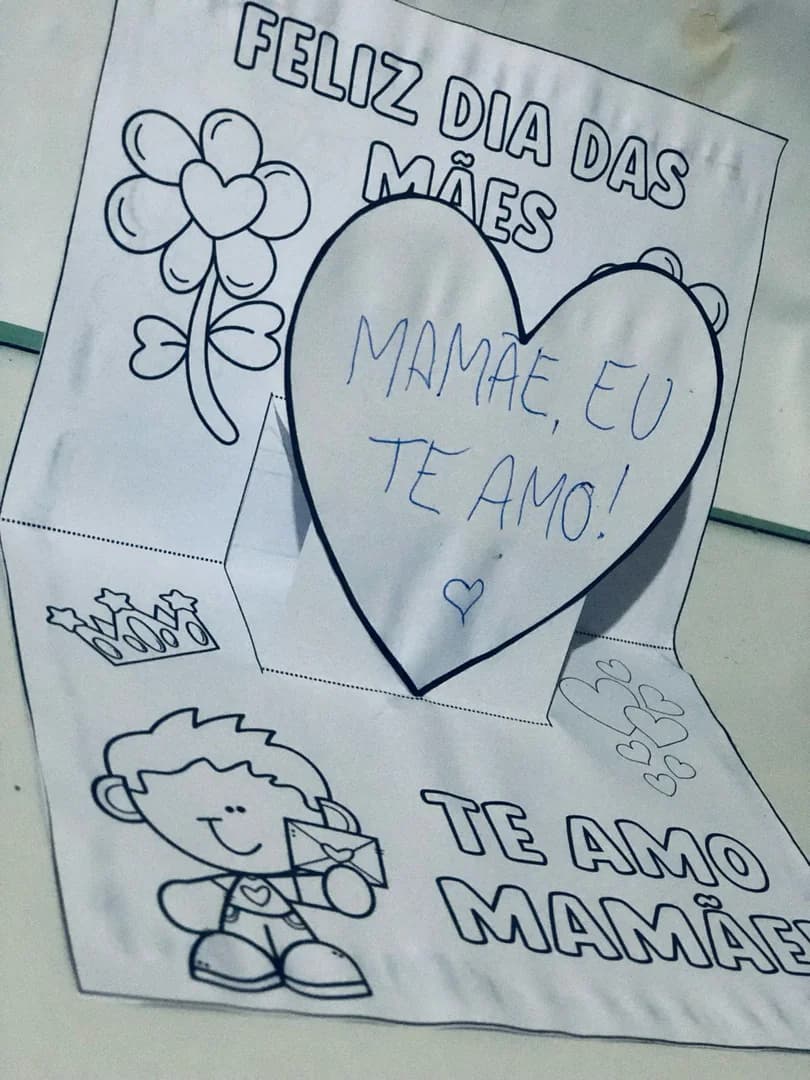 FELIZ DIA DAS
MÃES
MAMÃE, EU
TE AMO!
TE AMO
MAMÃE